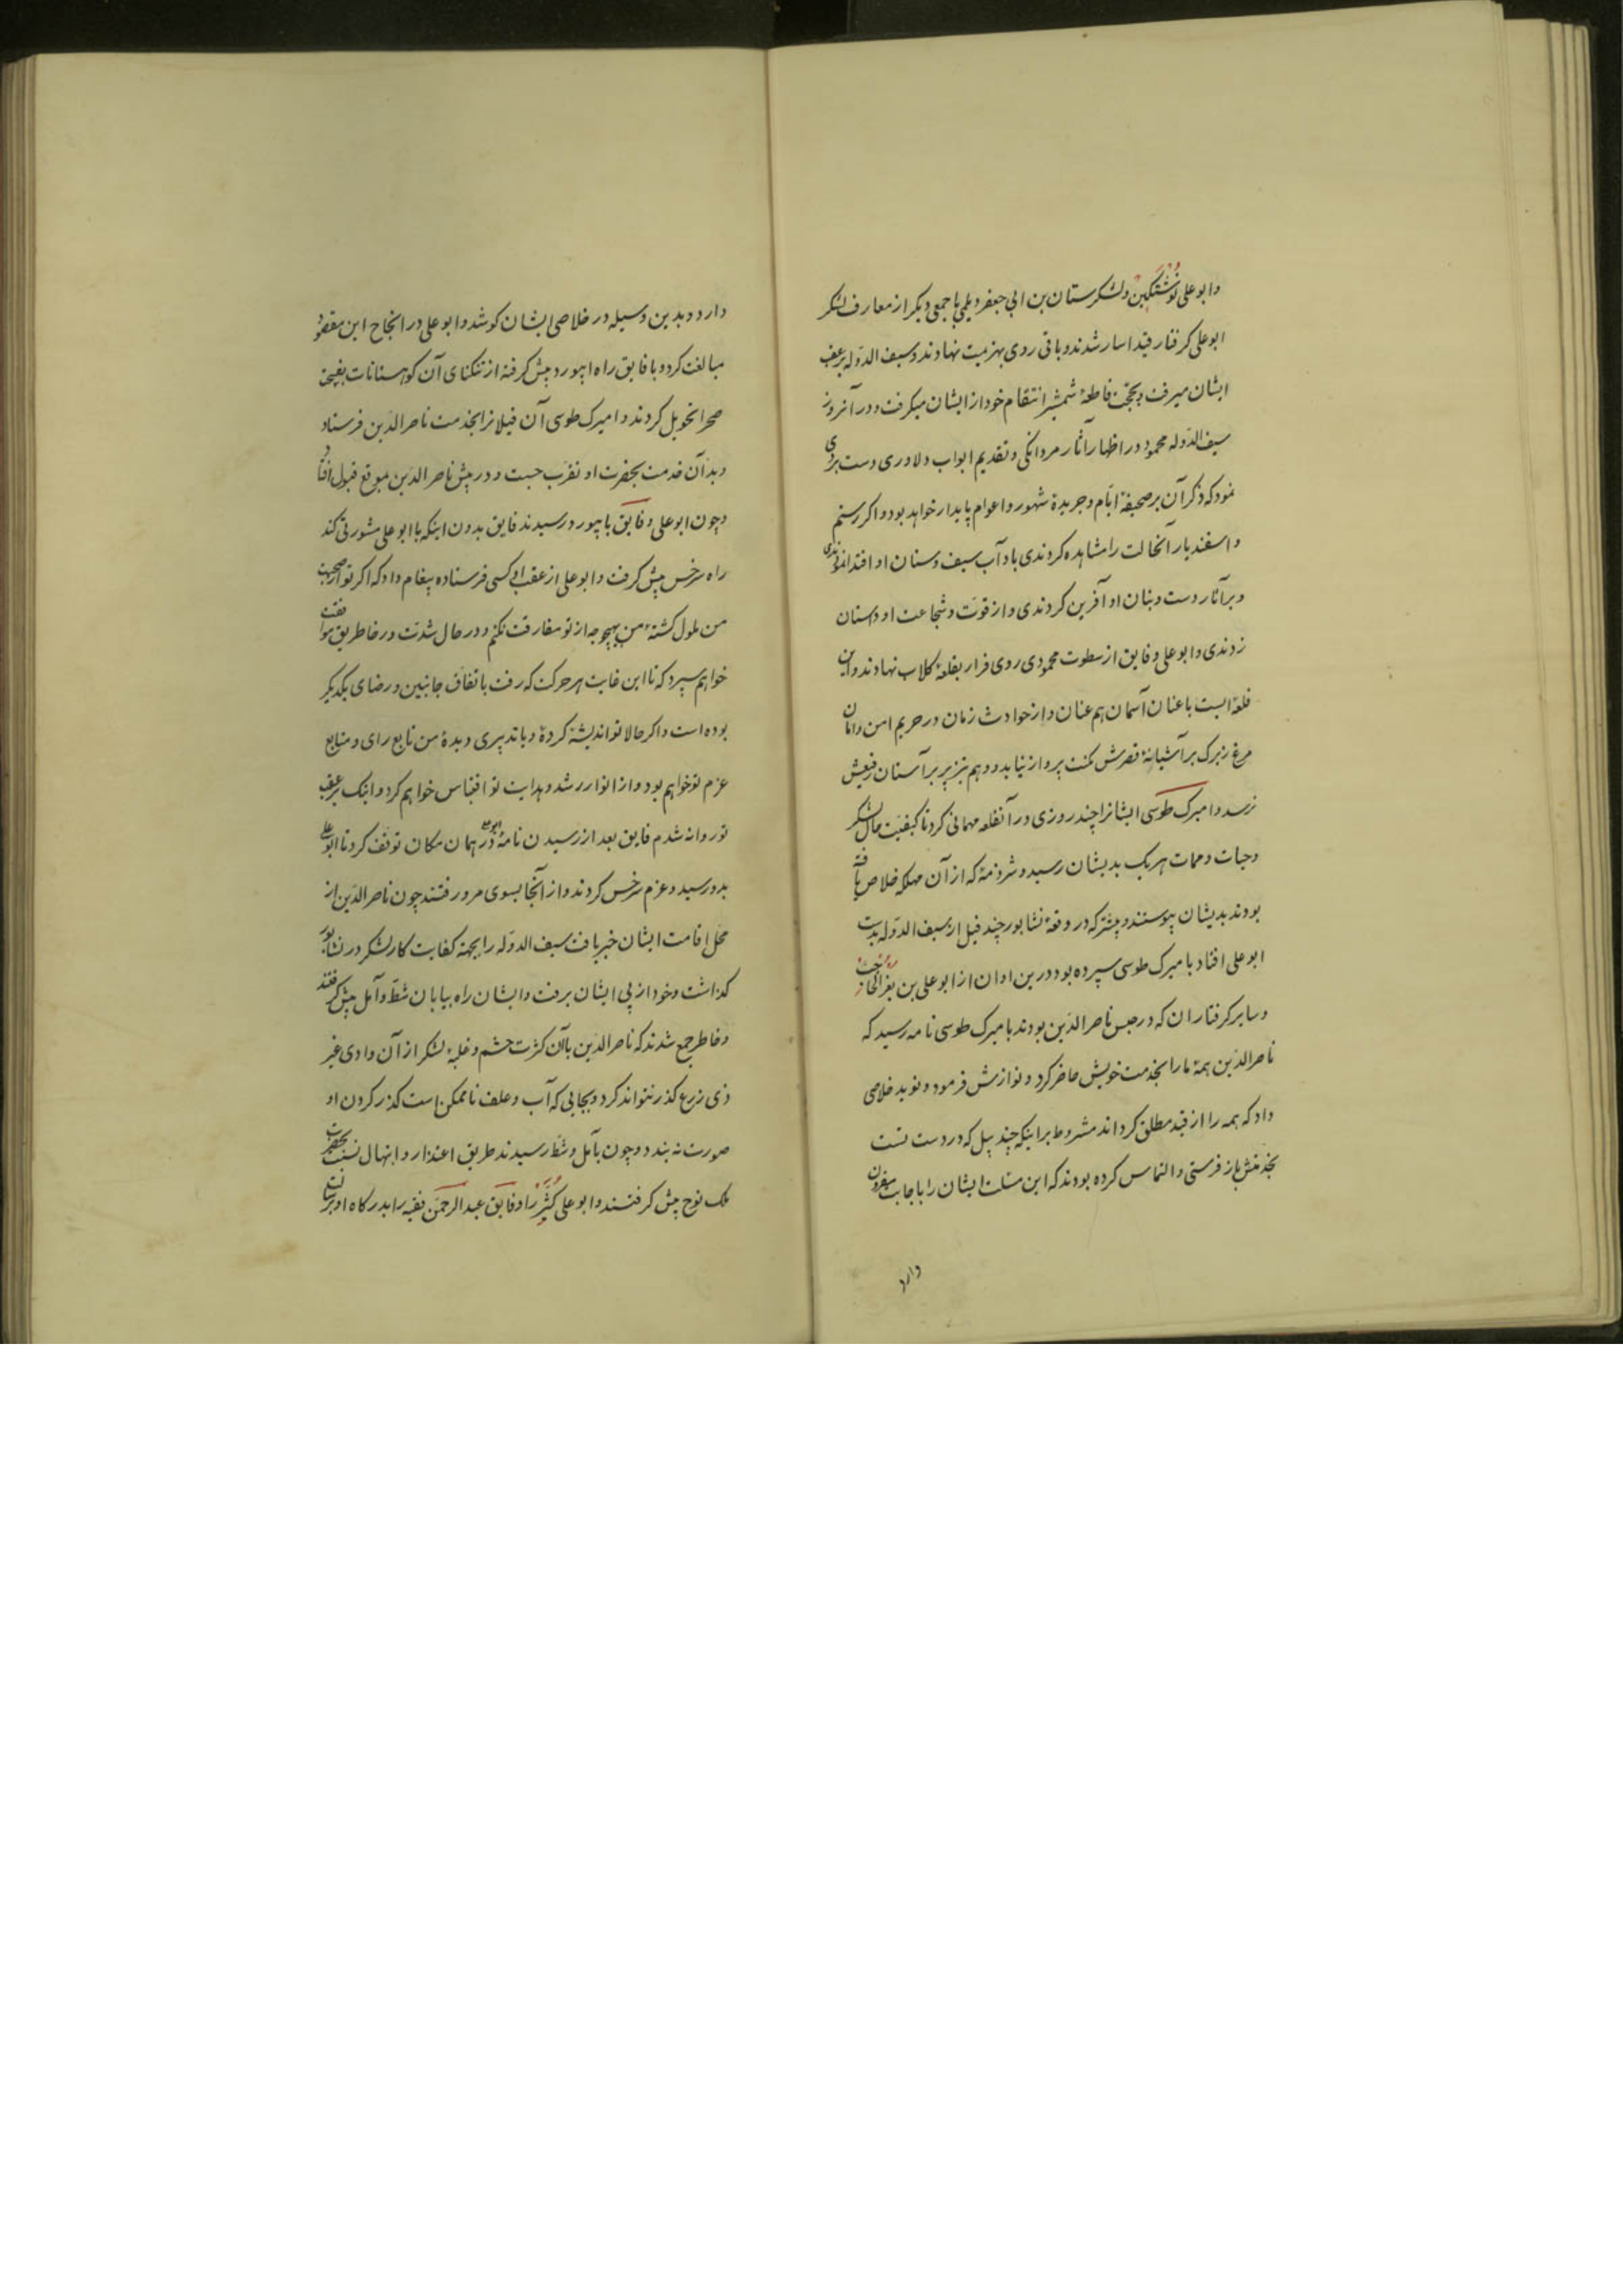 و ابو علی نوشتکین و لشکرستان بن ابی جعفر دیلمی با جمعی دیکر از معارف لشکر
ابو علی کرفتار قید اسار شدند و باقی روی بهزیمت نهادند و سیف الدوله بر عقب
ایشان میرفت و بحجت قاطعهٔ شمشیر انتقام خود از ایشان میکرفت و در آنروز
سیف الدوله محمود در اظهار آثار مردانکی و تقدیم ابواب دلاوری دست بردی
نمود که ذکر آن بر صحیفهٔ ایام و جریدهٔ شهور و اعوام پایدار خواهد بود و اکر رستم
و اسفندیار آنحالت را مشاهده کردندی با داب سیف و سنان او اقتدا نمودندی
و بر آثار دست و بنان او آفرین کردندی و از قوت و شجاعت او داستان
زدندی و ابو علی و فایق از سطوت محمودی روی فرار بقلعهٔ کلاب نهادند و این
قلعهٔ ایست با عنان آسمان هم عنان و از حوادث زمان در حریم امن و امان
مرغ زیرک بر آشیانهٔ قصرش مکنت پرواز نیابد و وهم تیزپر بر آستان رفیعش
نرسد و امیرک طوسی ایشانرا چند روزی در آنقلعه مهمانی کرد تا کیفیت حال لشکر
و حیات و ممات هر یک بدیشان رسید و شرذمهٔ که از آن مهلکه خلاص یافته
بودند بدیشان پیوستند و پیشتر که در وقعهٔ نشابور چند فیل از سیف الدوله بدست
ابو علی افتاد با میرک طوسی سپرده بود درین اوان از ابو علی بن بغرا الحاجب
و سایر کرفتاران که در حبس ناصر الدین بودند بامیرک طوسی نامه رسید که
ناصر الدین همهٔ ما را بخدمت خویش حاضر کرد و نوازش فرمود و نوید خلاصی
داد که همه را از قید مطلق کرداند مشروط بر اینکه چند پیل که در دست تست
بخدمتش باز فرستی و التماس کرده بودند که این مسئلت ایشان را باجابت مقرون
دارد
دارد و بدین وسیله در خلاصی ایشان کوشد و ابو علی در انجاح این مقصود
مبالغت کرد و با فایق راه ابیورد پیش کرفته از تنکنای آن کوهستانات بفسحت
صحرا تحویل کردند و امیرک طوسی آن فیلانرا بخدمت ناصر الدین فرستاد
و بدان خدمت بحضرت او تقرب جست و در پیش ناصر الدین موقع قبول افتاد
و چون ابو علی و فایق بابیورد رسیدند فایق بدون اینکه با ابو علی مشورتی کند
راه سرخس پیش کرفت و ابو علی از عقب او کسی فرستاده پیغام داد که اکر تو از صحبت
من ملول کشتهٔ من بهیچوجه از تو مفارقت نکنم و در حال شدت و رخا طریق موافقت
خواهم سپرد که تا این غایت هر حرکت که رفت باتفاق جانبین و رضای یکدیکر
بوده است و اکر حالا تو اندیشهٔ کردهٔ و یا تدبیری دیدهٔ من تابع رای و متابع
عزم تو خواهم بود و از انوار رشد و هدایت تو اقتباس خواهم کرد و اینک بر عقب
تو روانه شدم فایق بعد از رسیدن نامهٔ ابو علی در همان مکان توقف کرد تا ابو علی
بدو رسید و عزم سرخس کردند و از آنجا بسوی مرو رفتند چون ناصر الدین از
محل اقامت ایشان خبر یافت سیف الدوله را بجهة کفایت کار لشکر در نشابور
کذاشت و خود از پی ایشان برفت و ایشان راه بیابان شط و آمل پیش کرفتند
و خاطر جمع شدند که ناصر الدین با آن کثرت حشم و غلبهٔ لشکر از آن وادی غیر
ذی زرع کذر نتواند کرد و بجایی که آب و علف ناممکن است کذر کردن او
صورت نه بندد و چون بآمل و شط رسیدند طریق اعتذار و ابتهال نسبت بحضرت
ملک نوح پیش کرفتند و ابو علی کثیر را و فایق عبد الرحمن فقیه را بدرکاه او برسالت